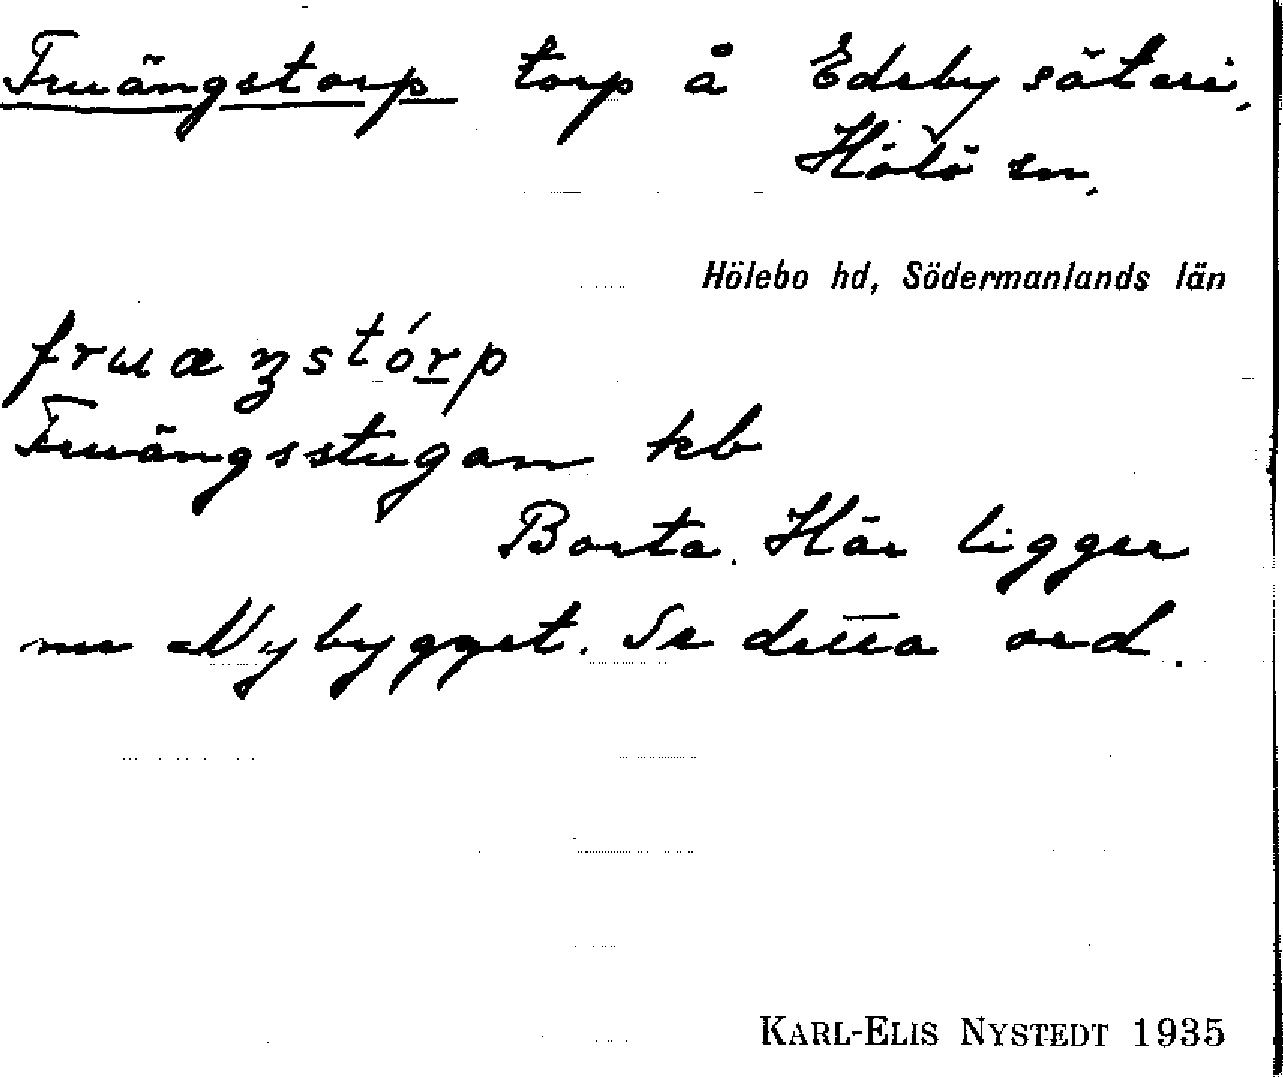 Fruängstorp torp å Edeby säteri,
Hölö sn.
Hölebo hd, Södermanlands län
fruæŋstórp
Fruängsstugan kb
Borta. Här ligger
nu Nybygget. Se detta ord.
KARL-ELIS NYSTEDT 1935